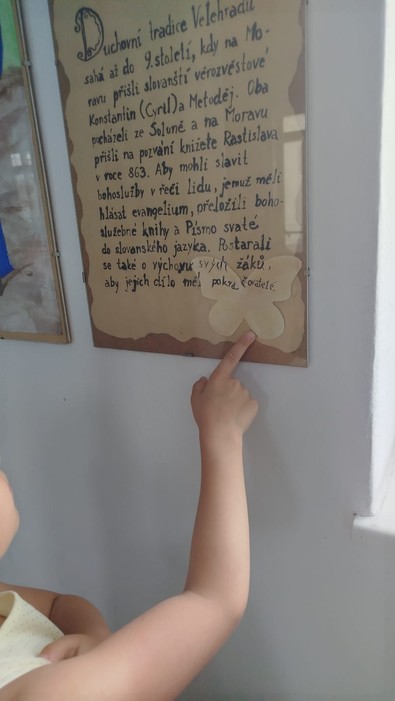 Duchovní tradice Velehradu
sahá až do 9. století, kdy na Mo-
ravu přišli slovanští věrozvěstové
Konstantin (Cyril) a Metoděj. Oba
pocházeli ze Soluně a na Moravu
přišli na pozvání knížete Rastislava
v roce 863. Aby mohli slavit
bohoslužby v řeči lidu, jemuž měli
hlásat evangelium, přeložili boho-
služebné knihy a Písmo svaté
do slovanského jazyka. Postarali
se také o výchovu svých žáků,
aby jejich dílo měl pokračovatele.